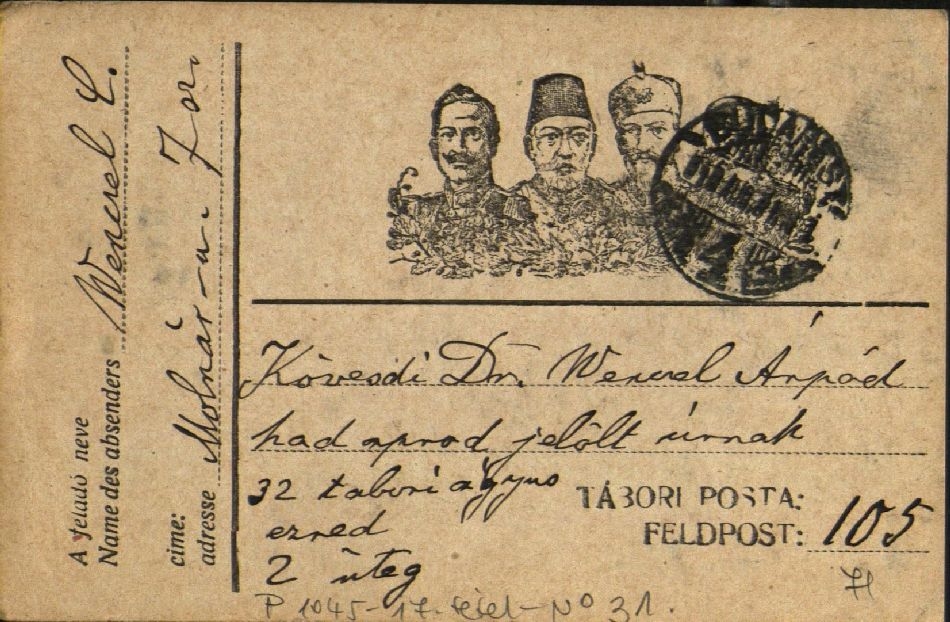 A feladó neve
Name des absenders Wenzel L.
cime:
adresse Molnár-u. 7
Kövesdi Dr. Wenzel Árpád
had aprod jelölt úrnak
32 tabori ágyus
ezred
2 üteg
TÁBORI POSTA:
FELDPOST: 105
P 1045-17. tétel-No 31.